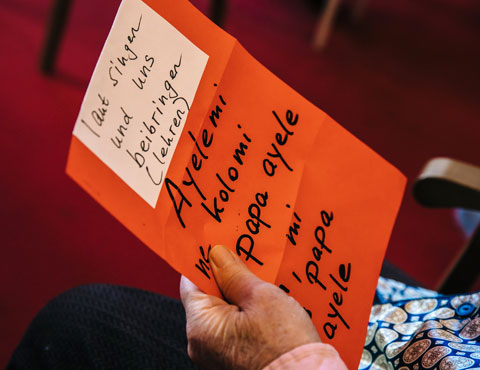 laut singen
und uns
beibringen
(lehren)
Ayelemi
kolomi
papa ayele
mi
papa
ayele